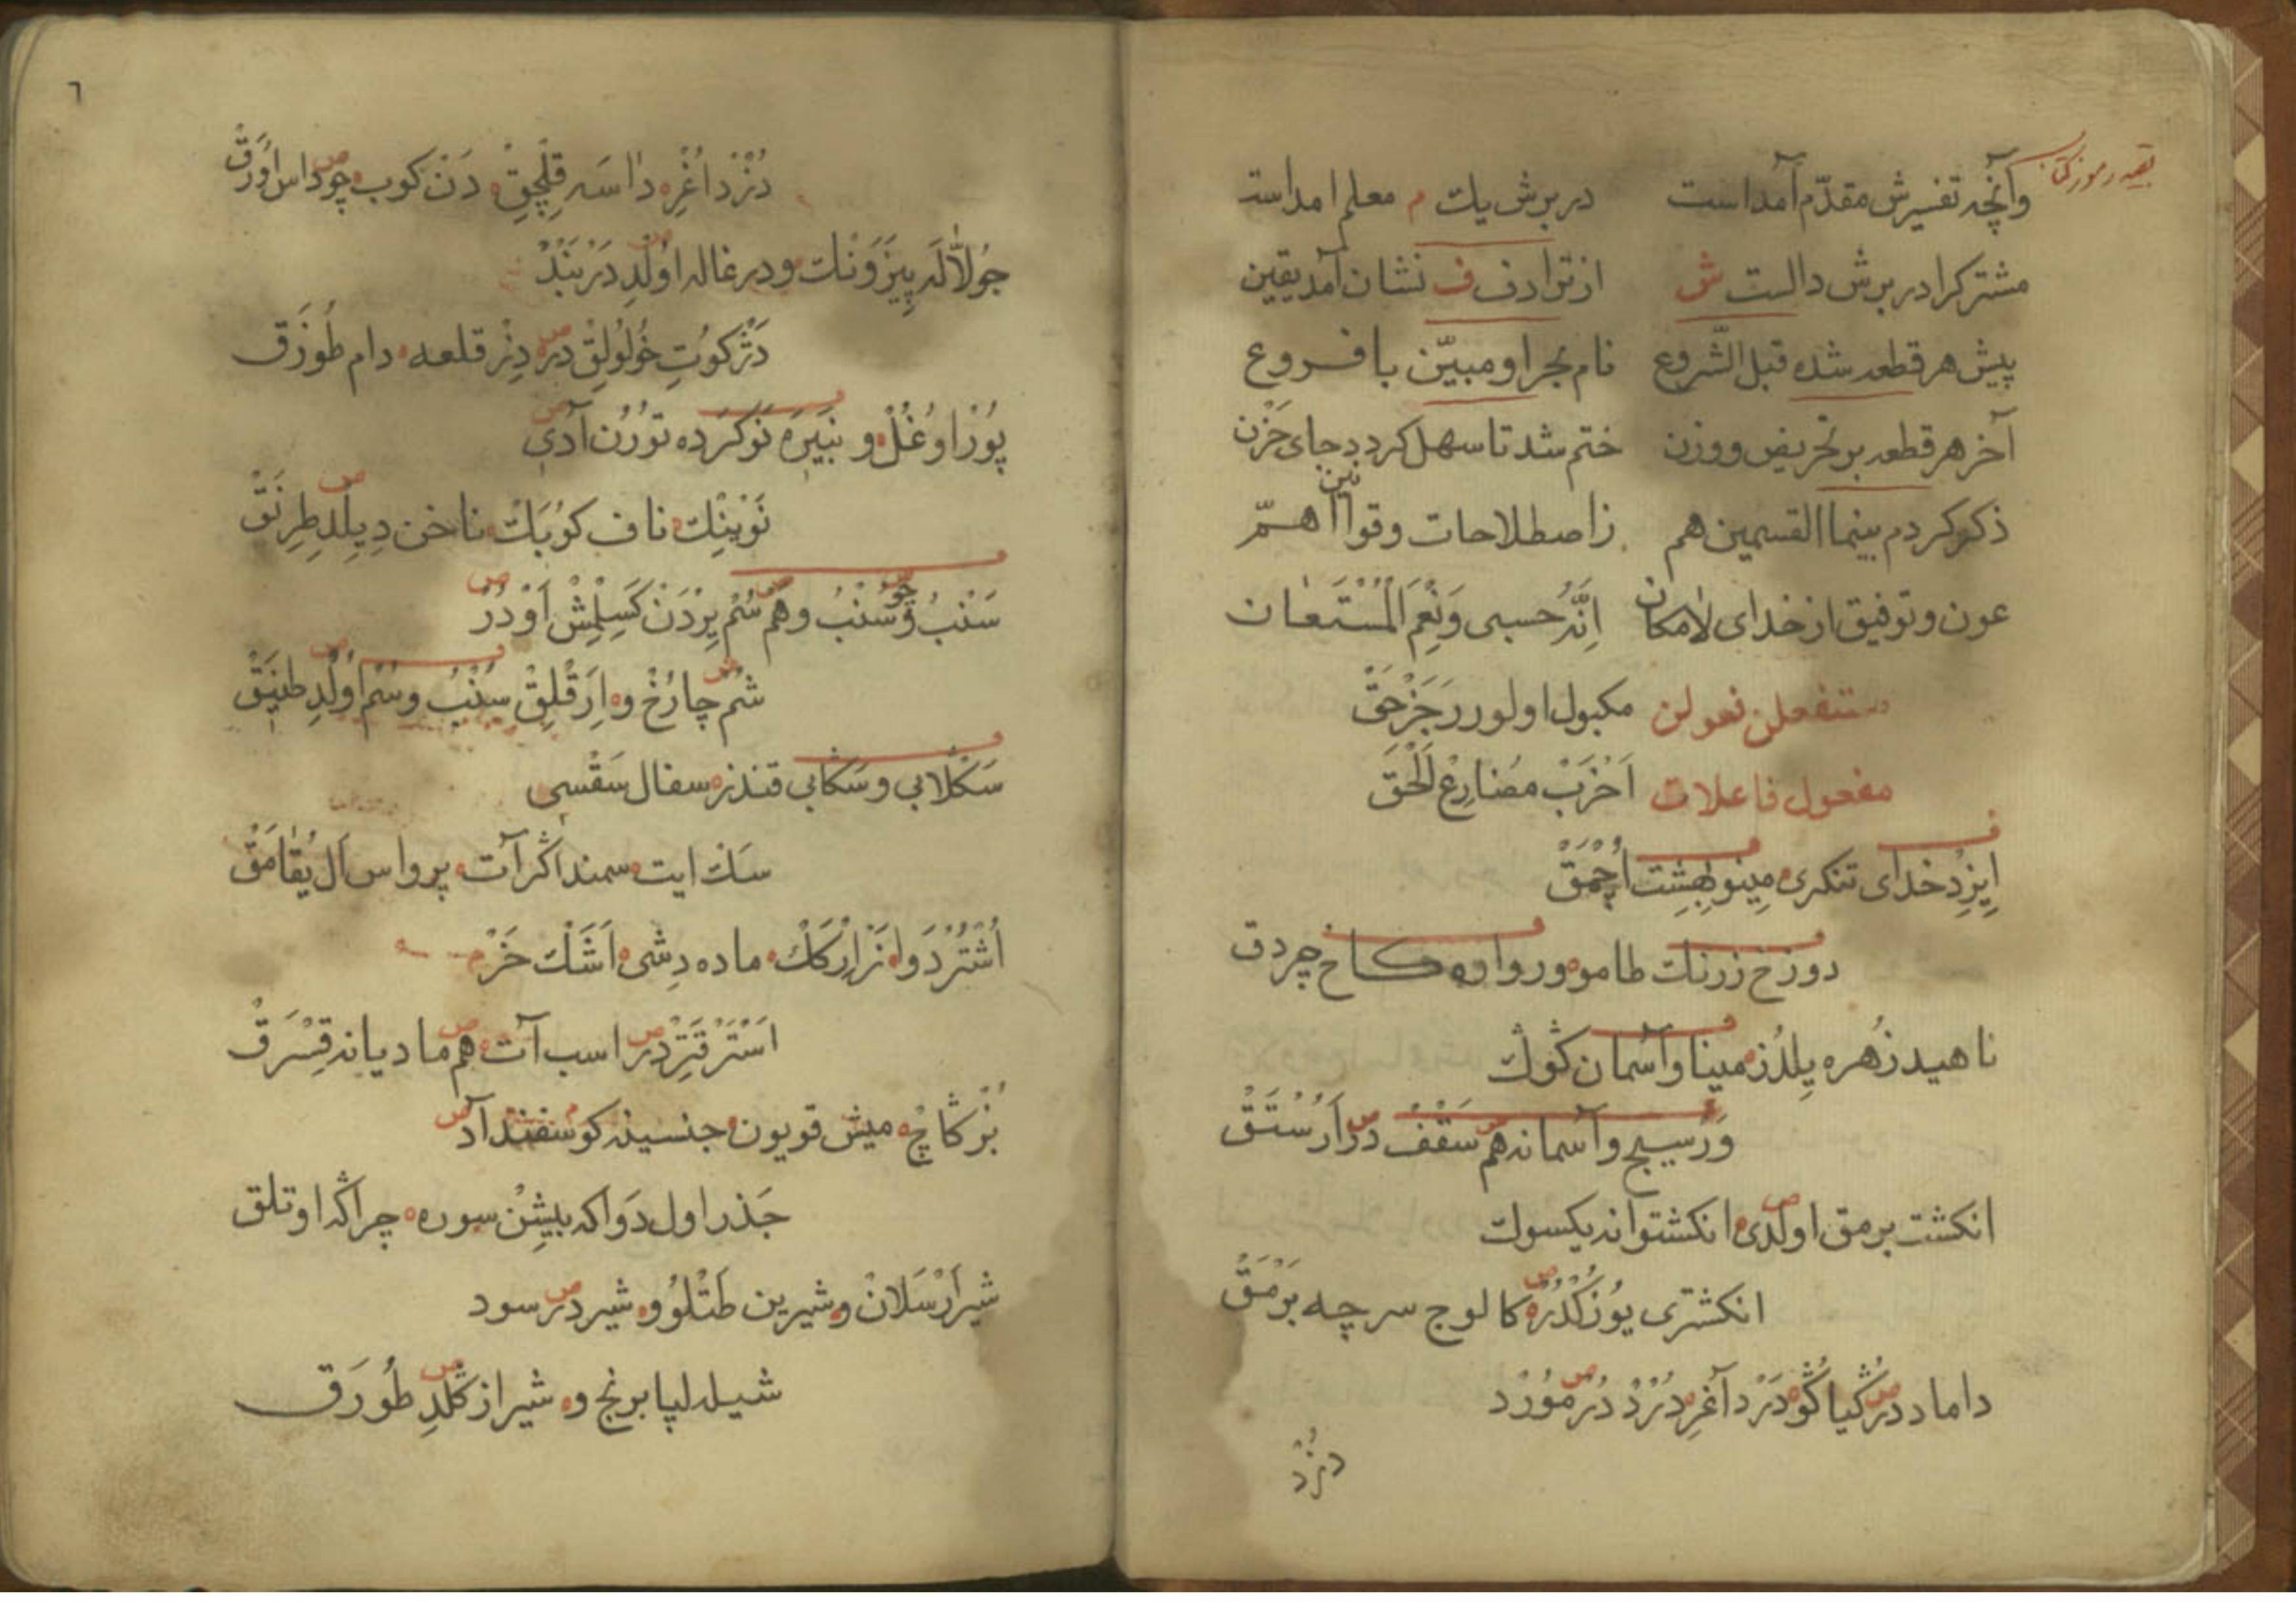 بقیه رموز کتاب
وآنچه تفسیرش مقدّم آمداست در برش یك م معلم امداست
مشترکرا در برش دالست ش از ترادف ف نشان آمد یقین
پیش هر قطعه شده قبل الشّروع نام بحر او مبیّن با فروع
آخر هر قطعه بر تحریض ووزن ختم شد تا سهل کردد جای حَزْن
ذکر کردم بینما القسمین هم زاصطلاحات و قوانین اهمّ
عون وتوفیق از خدای لامکان اِنَّهُ حسبی وَنِعْمَ الْمُسْتَعَان
مستفعلن فعولن مکبول اولور رَجَزْ حَقّ
مفعول فاعلات اَخْرَبْ مضارِعْ اَلْحَقّ
اِیزِدْ خدای تنکری مینو بِهِشِت اُچْمَقْ
دوزخ زرنك طامو وروارە کاخ چردق
ناهید زُهره یِلدُز مینا وآسمان کوڭ
وَرْسیج وآسمانه هم سَقْفْ در اَرُسْتَقْ
انکشت برمق اولدی انکشتوانه یکسوك
انکشتری یُوزُكْدُرْ کالوج سرچه بَرْمَقْ
داماد در ڭیاکُو دَرْد آغرِ دُرْدْ دُرْ مُورْد
دُزْد
٦
دُزْد اغْرِ داسَه قِلْچِقْ دَنْ کوب چو داس اوُرَقْ
جُولاّلَه پِیزَوَنْك ودر غاله اوُلْدِ دَرْبَنْدْ
دَژ کُوتِ خُولُولِقْ در دِزْ قلعه دام طُوزَق
پُورْ اوغُلْ و نَبیَرَه نَوکَرَده تورُن آدی
نَوْ یِنِك ناف کوُبَك ناخن دِیِلْدِ طِرنَقْ
سَنْبُ وُ سُنْبُ وهَم سُمْ یِرْدَنْ کَسِلْمِشْ اَوْ دُرْ
شُم چارُخْ و اِرَقْلِقْ سُنْبُ وسُم اُولْدِ طنِیَقْ
سَکْلابی وسَکابی قندز سفال سَقْسی
سَك ایت سمند اڭر آت پرواس اَل یُقامَقْ
اُشْتُرْ دَوَه نَرْ اِرْکَكْ ماده دِشی اَشَكْ خَرْ
اَسْتَرْ قَتِرْ در اسب آت هم مادیانه قِسْرَقْ
بُزْ کَاچِ میش قویون جنسینه کوسفند آد
جَذر اول دَوَاکه بیشِنْ سوره چراکه اوتلق
شیر اَرْسَلانْ وشیرین طَتْلُو شیر در سود
شیله لپا برنج و شیراز کَلْدِ طُورَق